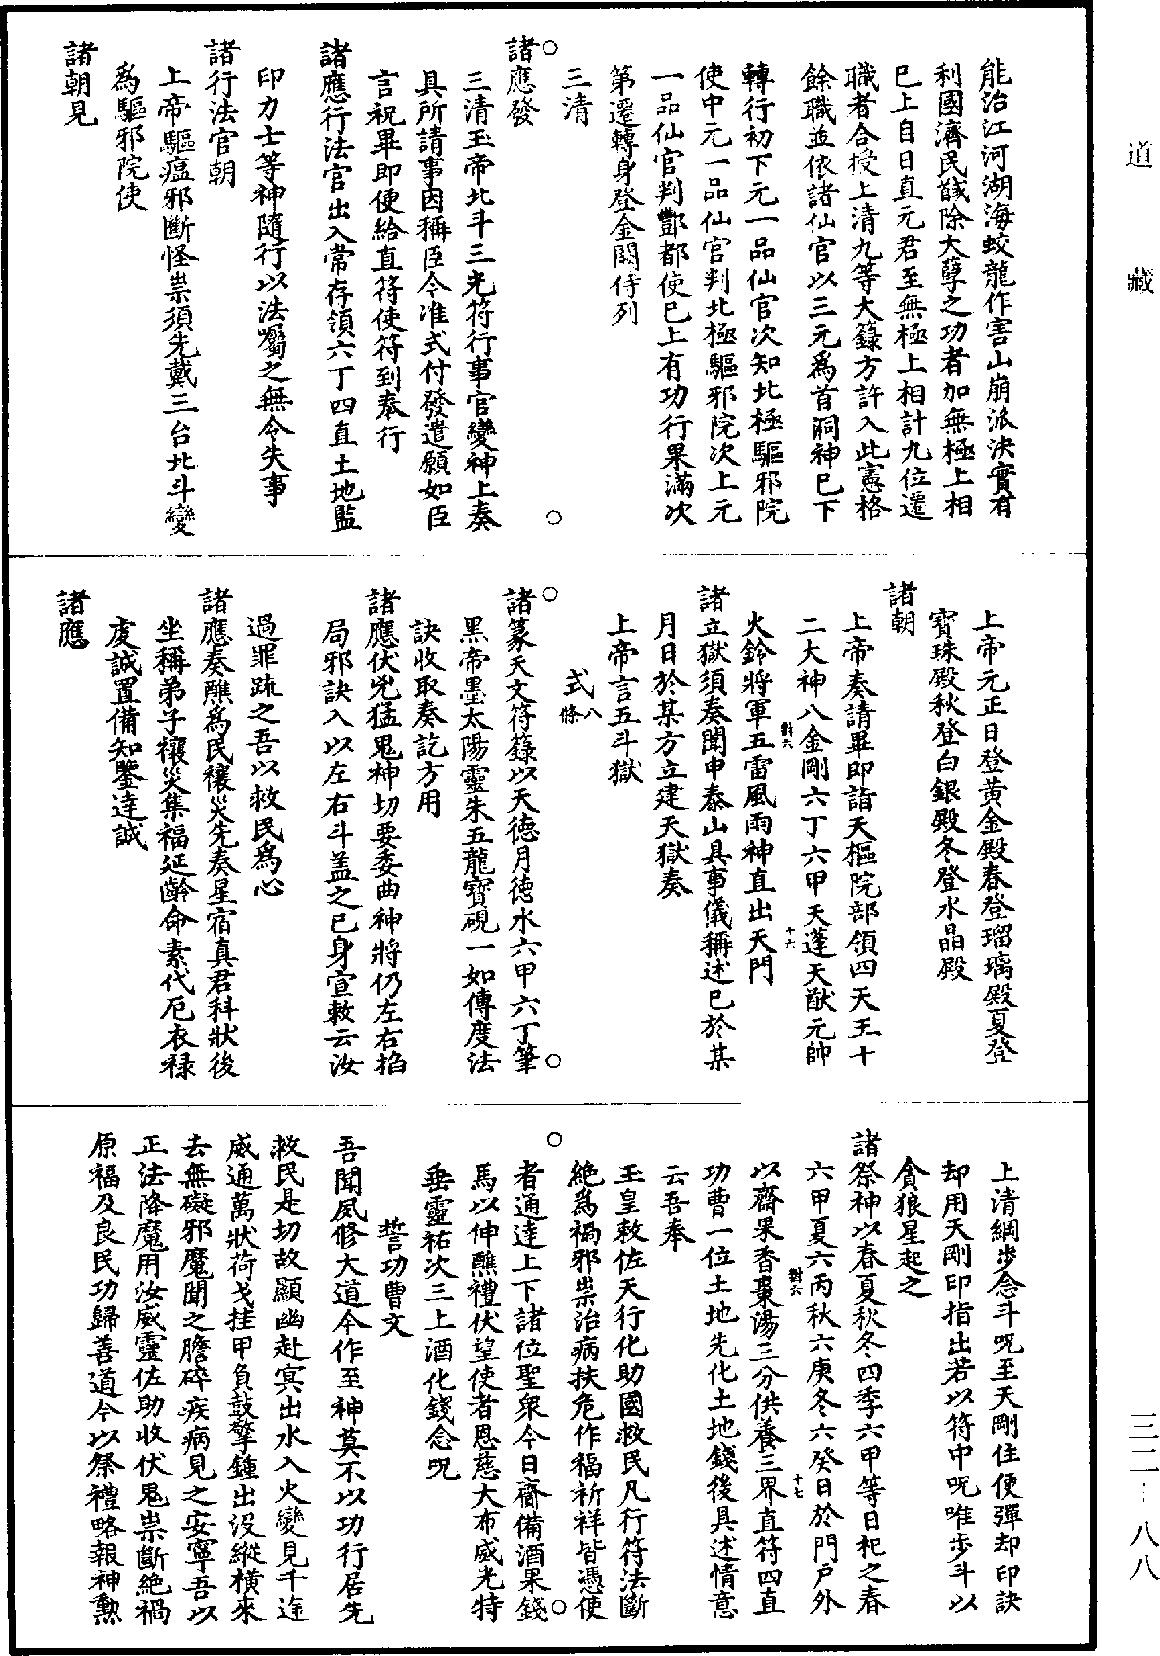 道藏
三二—八八
能治江河湖海蛟龍作害山崩派決實有
利國濟民馘除大孽之功者加無極上相
巳上自日直元君至無極上相計九位遷
職者合授上清九等大籙方許入此憲格
餘職並依諸仙官以三元爲首嗣神巳下
轉行初下元一品仙官次知北極驅邪院
使中元一品仙官判北極驅邪院次上元
一品仙官判酆都使巳上有功行果滿次
第遷轉身登金闕侍列
三清
諸應發
三清玉帝北斗三光符行事官變神上奏
具所請事因稱臣今准式付發遣願如臣
言祝畢即便給直符使符到奉行
諸應行法官出入常存領六丁四直土地監
印力士等神隨行以法囑之無令失事
諸行法官朝
上帝驅瘟邪斷怪祟須先戴三台北斗變
爲驅邪院使
諸朝見
上帝元正日登黃金殿春登瑠璃殿夏登
寶珠殿秋登白銀殿冬登水晶殿
諸朝
上帝奏請畢即詣天樞院部領四天王十
二大神八金剛六丁六甲天蓬天猷元帥
火鈴將軍五雷風雨神直出天門
諸立獄須奏聞申泰山具事儀稱述巳於某
月日於某方立建天獄奏
上帝言五斗獄
式八條
諸篆天文符籙以天德月德水六甲六丁筆
黑帝墨太陽靈朱五龍寶硯一如傳度法
訣收取奏訖方用
諸應伏兇猛鬼神切要委曲神將仍左右掐
局邪訣入以左右斗盖之巳身宣敕云汝
過罪疏之吾以救民爲心
諸應奏醮爲民禳災先奏星宿真君科狀後
坐稱弟子禳災集福延齡命素代厄衣禄
虔誠置備知鑒達誠
諸應
上清綱步念斗呪至天剛住便彈却印訣
却用天剛印指出若以符中呪唯步斗以
貪狼星起之
諸祭神以春夏秋冬四季六甲等日祀之春
六甲夏六丙秋六庚冬六癸日於門戶外
以齋果香棗湯三分供養三界直符四直
功曹一位土地先化土地錢後具述情意
云吾奉
玉皇敕佐天行化助國救民凡行符法斷
絶爲禍邪祟治病扶危作福祈祥皆憑使
者通達上下諸位聖衆今日齋備酒果錢
馬以伸醮禮伏望使者恩慈大布威光特
垂靈祐次三上酒化錢念呪
誓功曹文
吾聞夙修大道今作至神莫不以功行居先
救民是切故顯幽赴冥出水入火變見千途
威通萬狀荷戈挂甲負鼓擎鍾出没縱横來
去無礙邪魔聞之膽碎疾病見之安寧吾以
正法降魔用汝威靈佐助收伏鬼祟斷絶禍
原福及良民功歸善道今以祭禮略報神勲